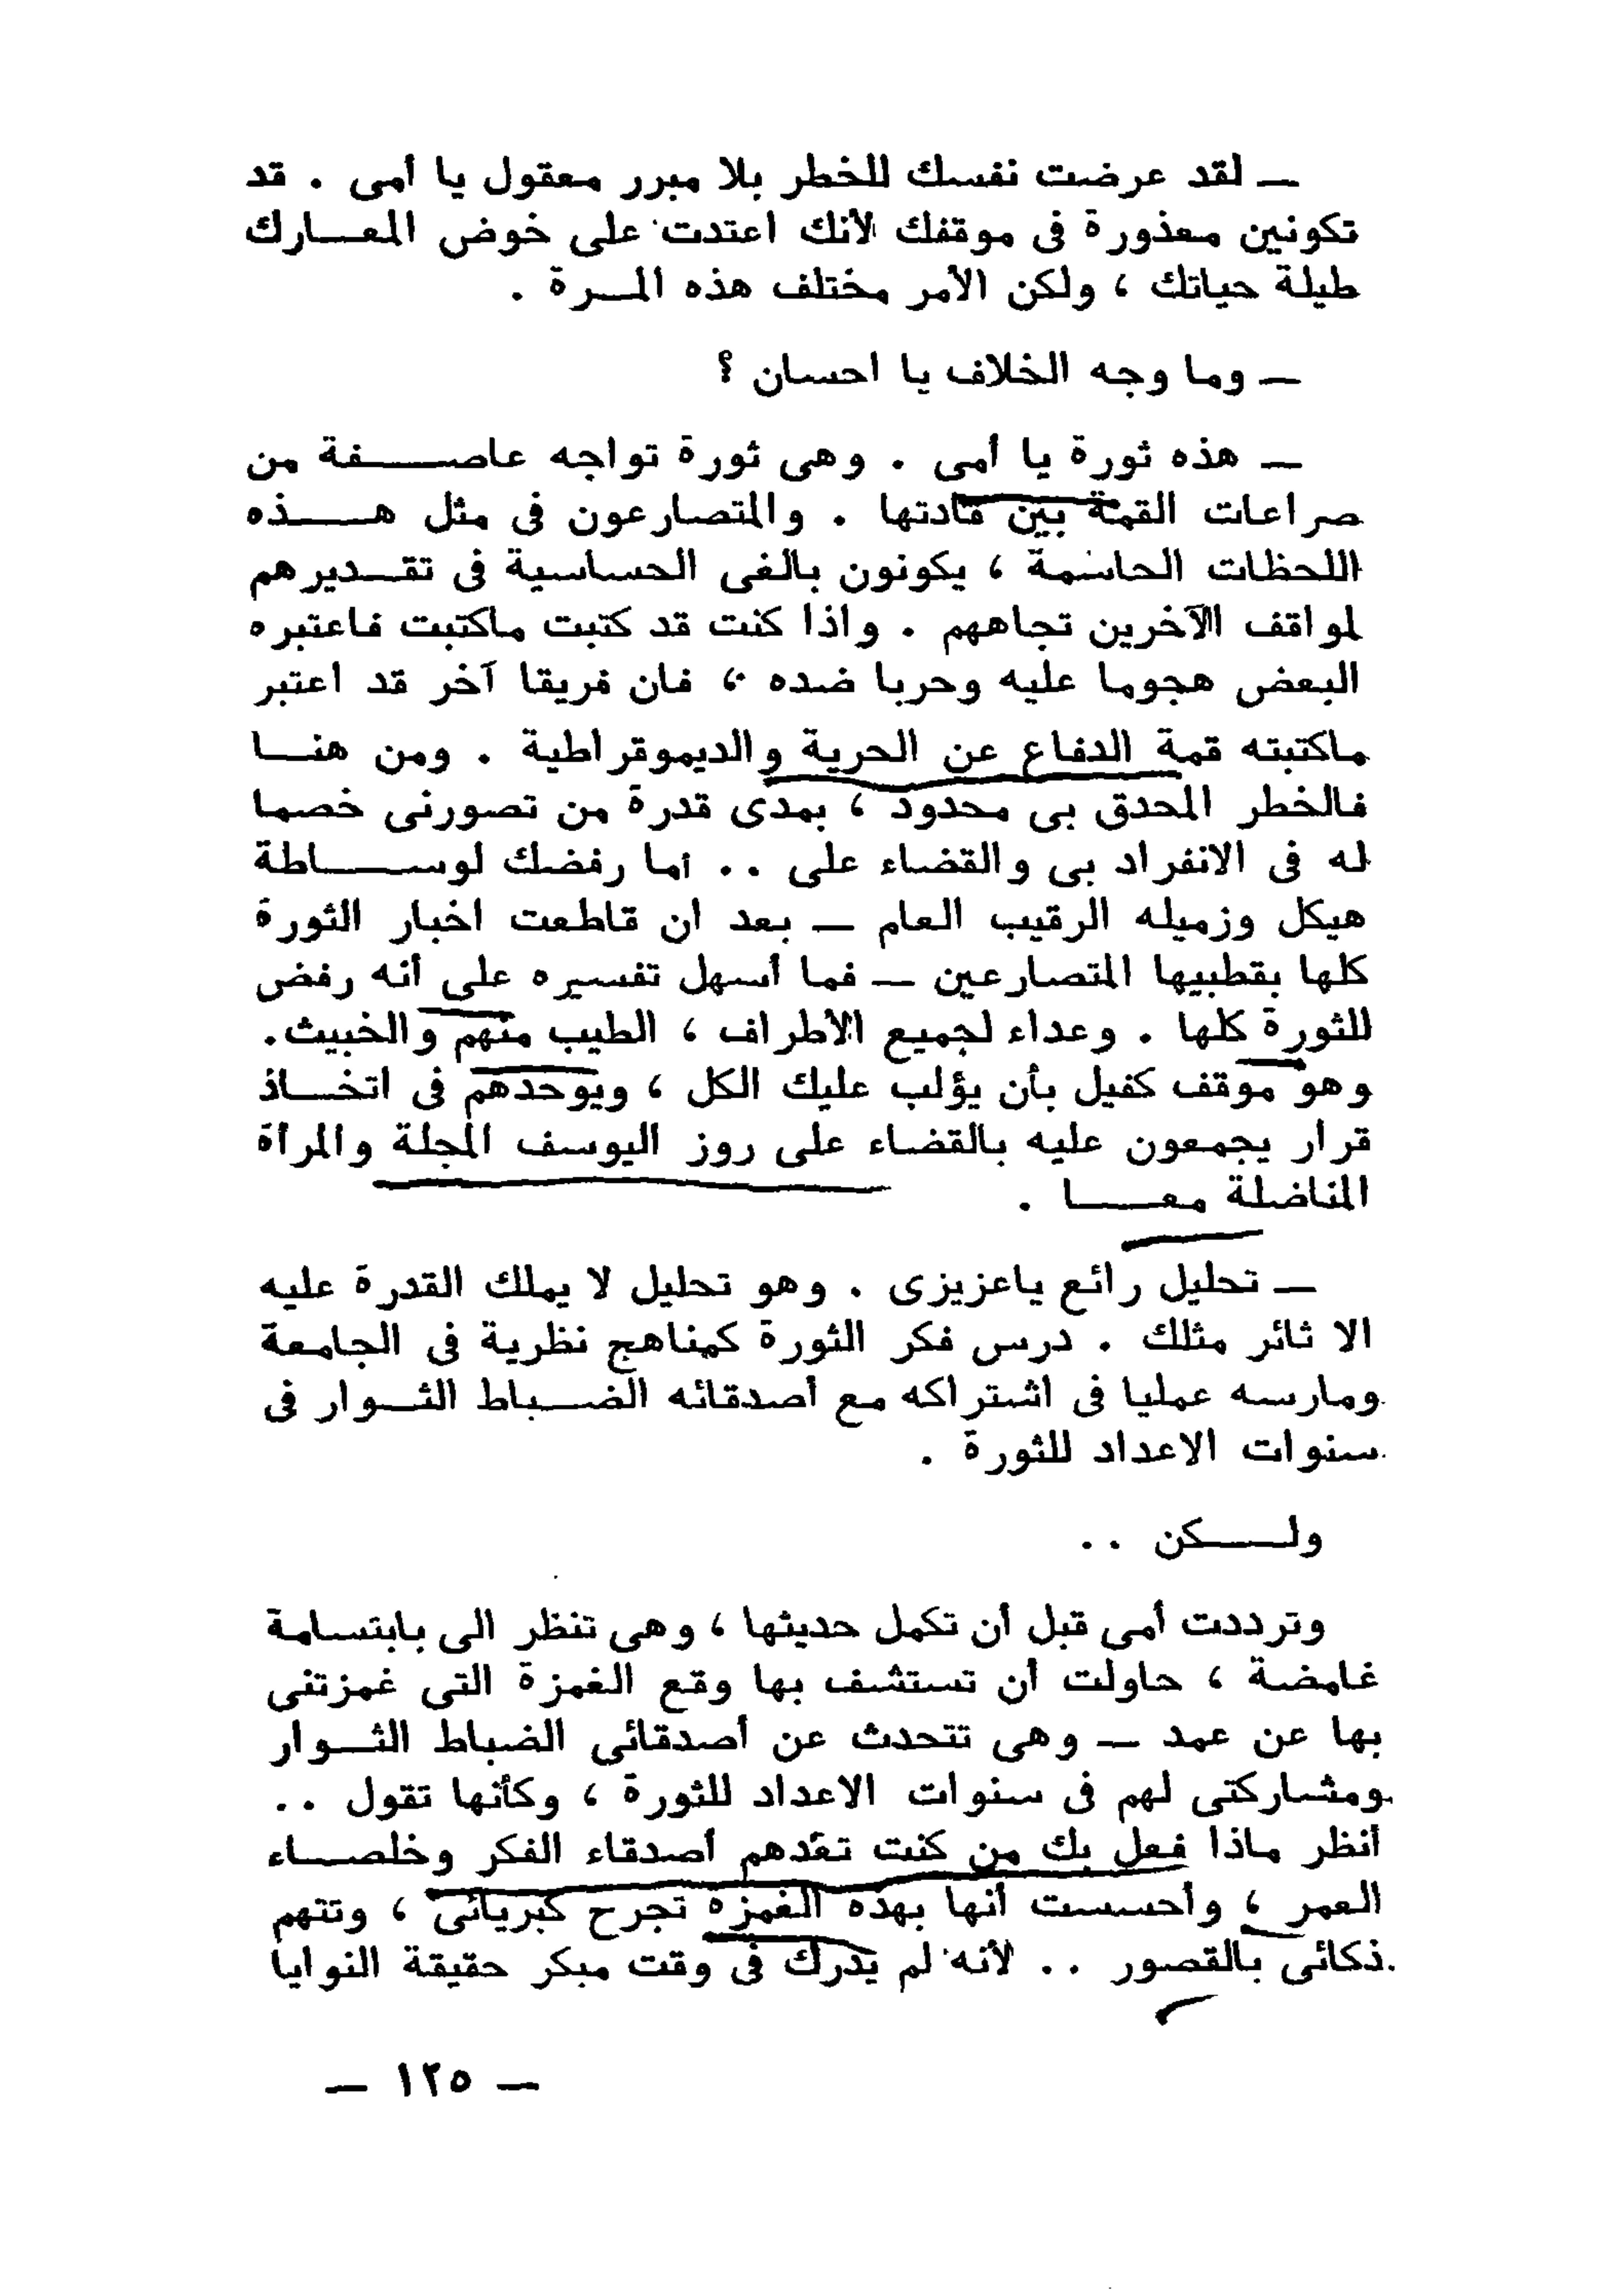 — لقد عرضت نفسك للخطر بلا مبرر معقول يا أمى . قد
تكونين معذورة فى موقفك لأنك اعتدت على خوض المعارك
طيلة حياتك ، ولكن الأمر مختلف هذه المرة .
— وما وجه الخلاف يا احسان ؟
— هذه ثورة يا أمى . وهى ثورة تواجه عاصفة من
صراعات القمة بين قادتها . والمتصارعون فى مثل هذه
اللحظات الحاسمة ، يكونون بالغى الحساسية فى تقديرهم
لمواقف الآخرين تجاههم . واذا كنت قد كتبت ماكتبت فاعتبره
البعض هجوما عليه وحربا ضده ، فان فريقا آخر قد اعتبر
ماكتبته قمة الدفاع عن الحرية والديموقراطية . ومن هنا
فالخطر المحدق بى محدود ، بمدى قدرة من تصورنى خصما
له فى الانفراد بى والقضاء على .. أما رفضك لوساطة
هيكل وزميله الرقيب العام — بعد ان قاطعت اخبار الثورة
كلها بقطبيها المتصارعين — فما أسهل تفسيره على أنه رفض
للثورة كلها . وعداء لجميع الأطراف ، الطيب منهم والخبيث.
وهو موقف كفيل بأن يؤلب عليك الكل ، ويوحدهم فى اتخاذ
قرار يجمعون عليه بالقضاء على روز اليوسف المجلة والمرأة
المناضلة معا .
— تحليل رائع ياعزيزى . وهو تحليل لا يملك القدرة عليه
الا ثائر مثلك . درس فكر الثورة كمناهج نظرية فى الجامعة
ومارسه عمليا فى اشتراكه مع أصدقائه الضباط الثوار فى
سنوات الاعداد للثورة .
ولكن ..
وترددت أمى قبل أن تكمل حديثها ، وهى تنظر الى بابتسامة
غامضة ، حاولت أن تستشف بها وقع الغمزة التى غمزتنى
بها عن عمد — وهى تتحدث عن أصدقائى الضباط الثوار
ومشاركتى لهم فى سنوات الاعداد للثورة ، وكأنها تقول ..
أنظر ماذا فعل بك من كنت تعدهم أصدقاء الفكر وخلصاء
العمر ، وأحسست أنها بهذه الغمزه تجرح كبريائى ، وتتهم
ذكائى بالقصور .. لأنه لم يدرك فى وقت مبكر حقيقة النوايا
— ١٢٥ —